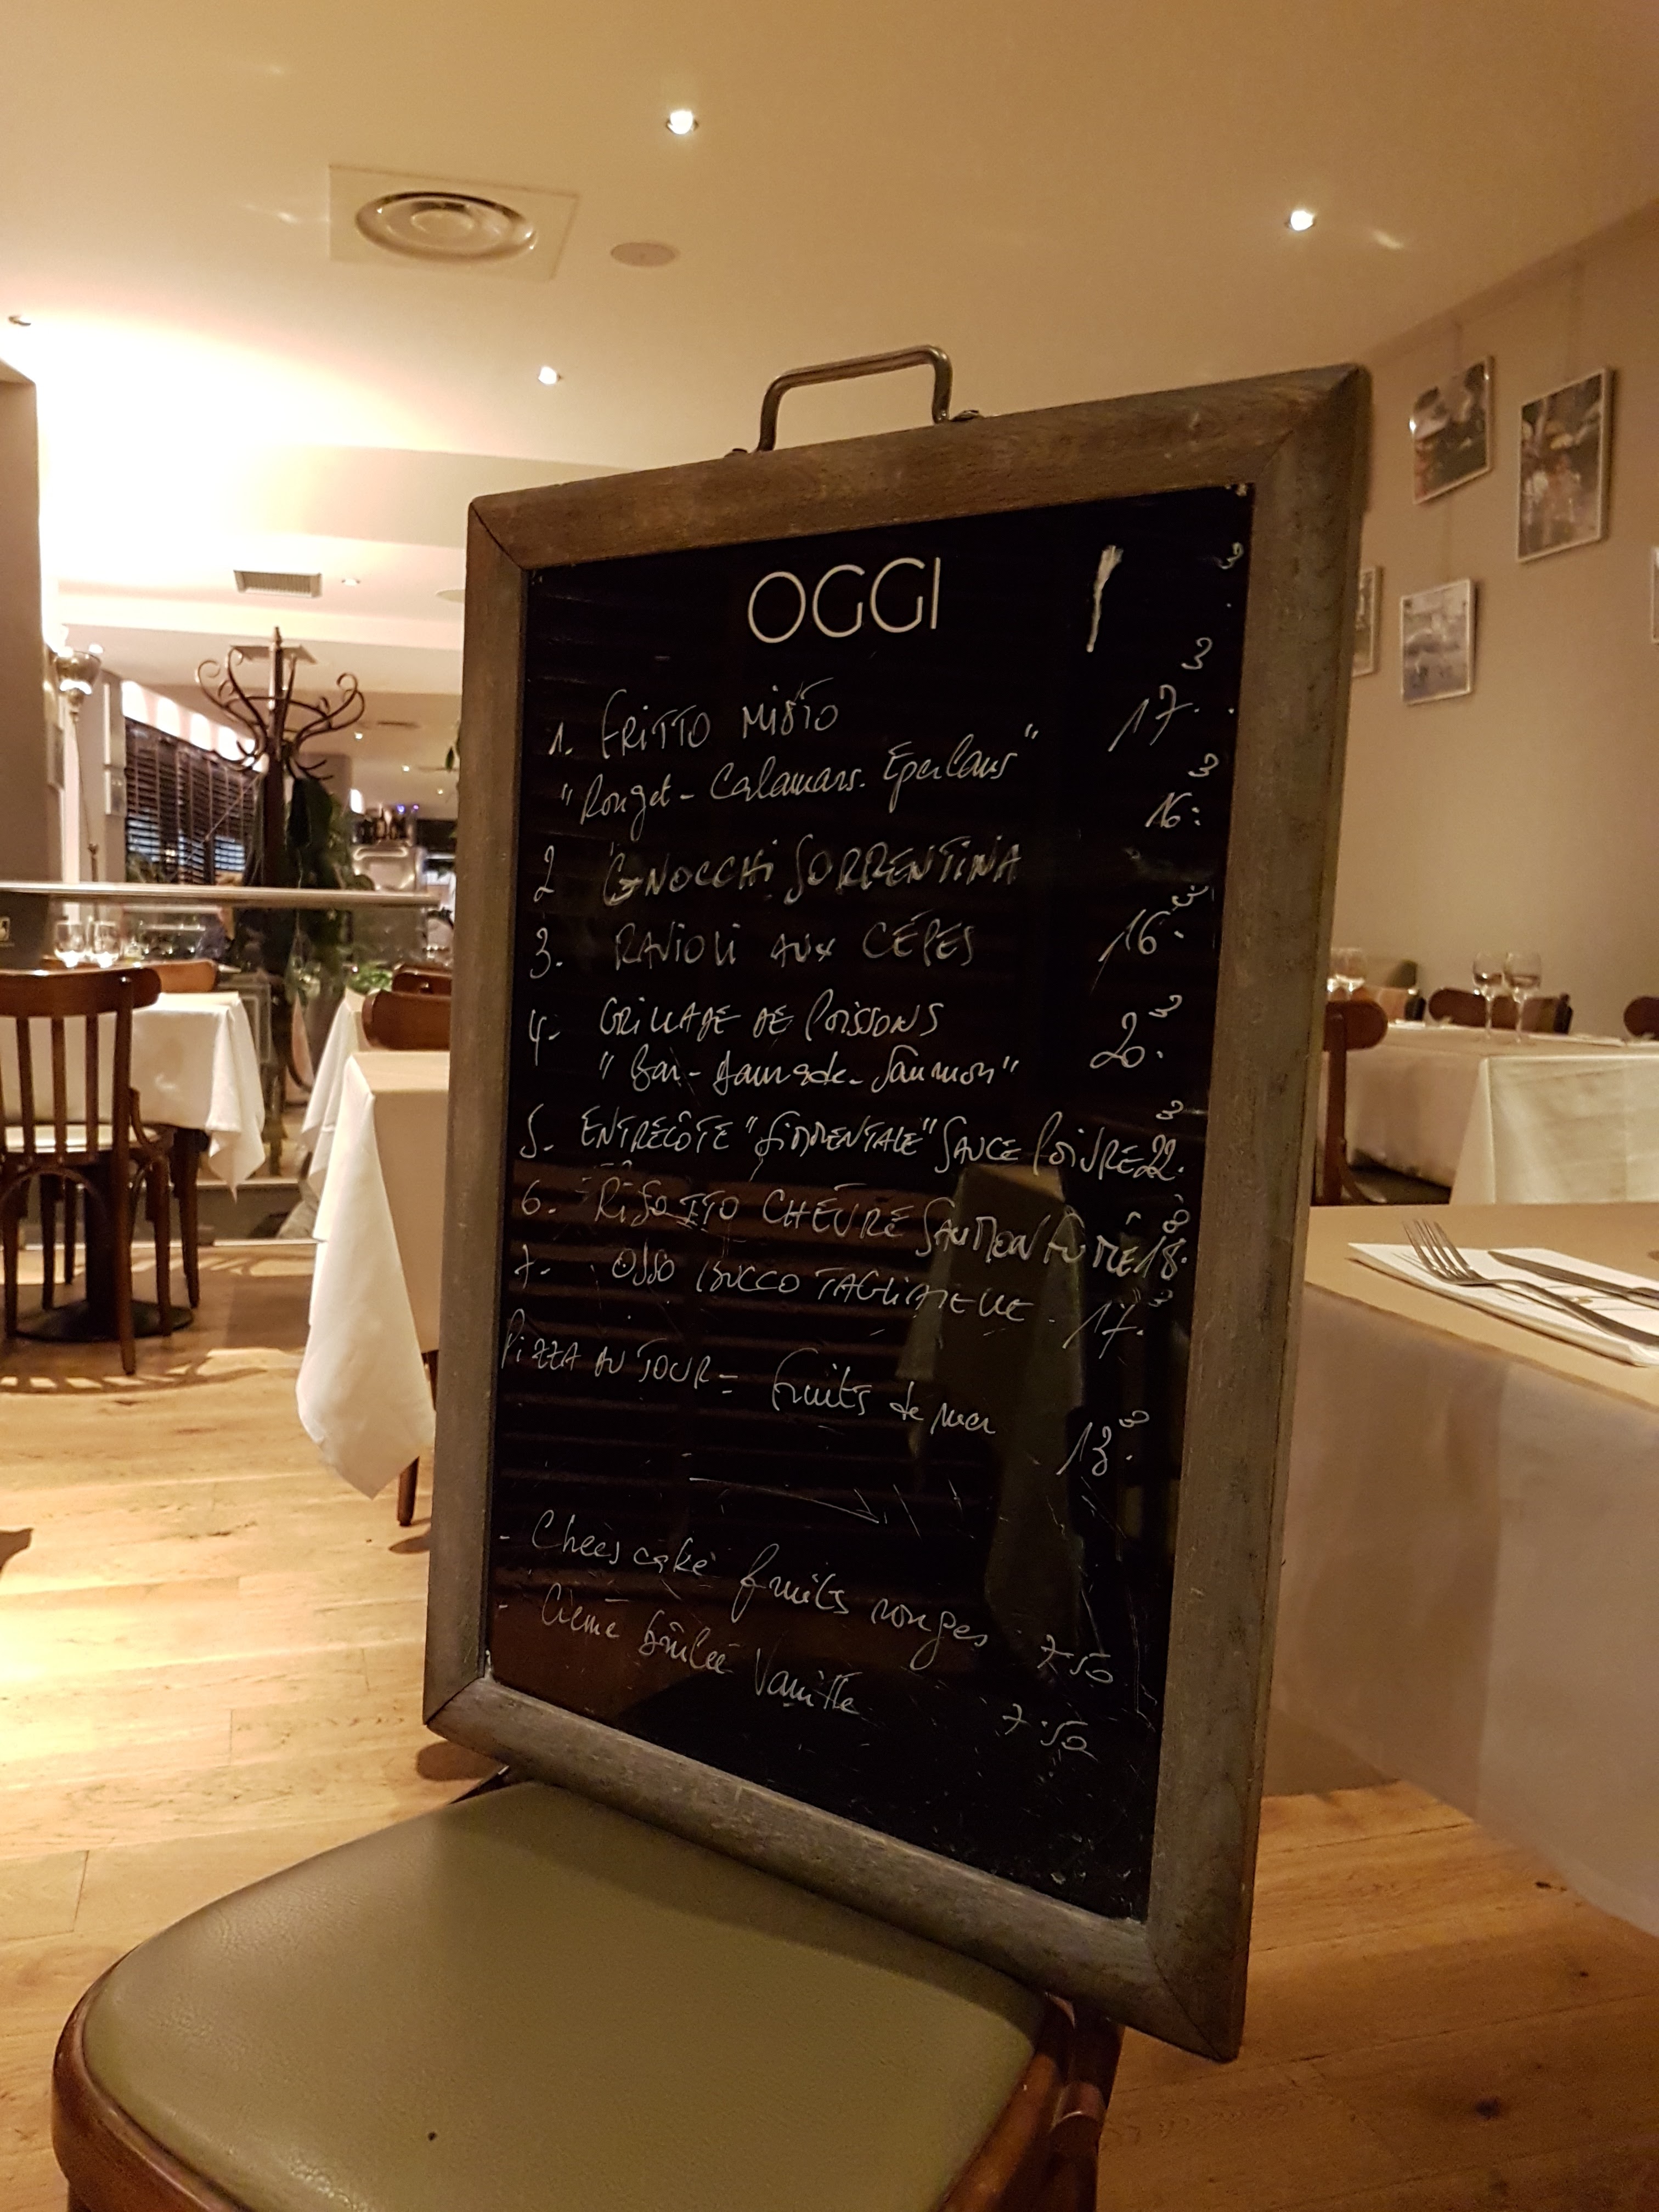 OGGI
1. FRITTO MISTO 17.
"Rouget - Calamars. Eperlans"
2 GNOCCHI SORRENTINA 16.
3. RAVIOLI AUX CÈPES 16.
4- GRILLADE DE POISSONS 20.
"Bar - daurade - Saumon"
5. ENTRECÔTE "SIMMENTALE" SAUCE POIVRE 22.
6. RISOTTO CHÈVRE SAUMON FUMÉ 18.
7. OSSO BUCCO TAGLIATELLE. 17.
PIZZA DU JOUR = fruits de mer 13.
- Chees cake fruits rouges 7.50
- Crème brûlée Vanille 7.50